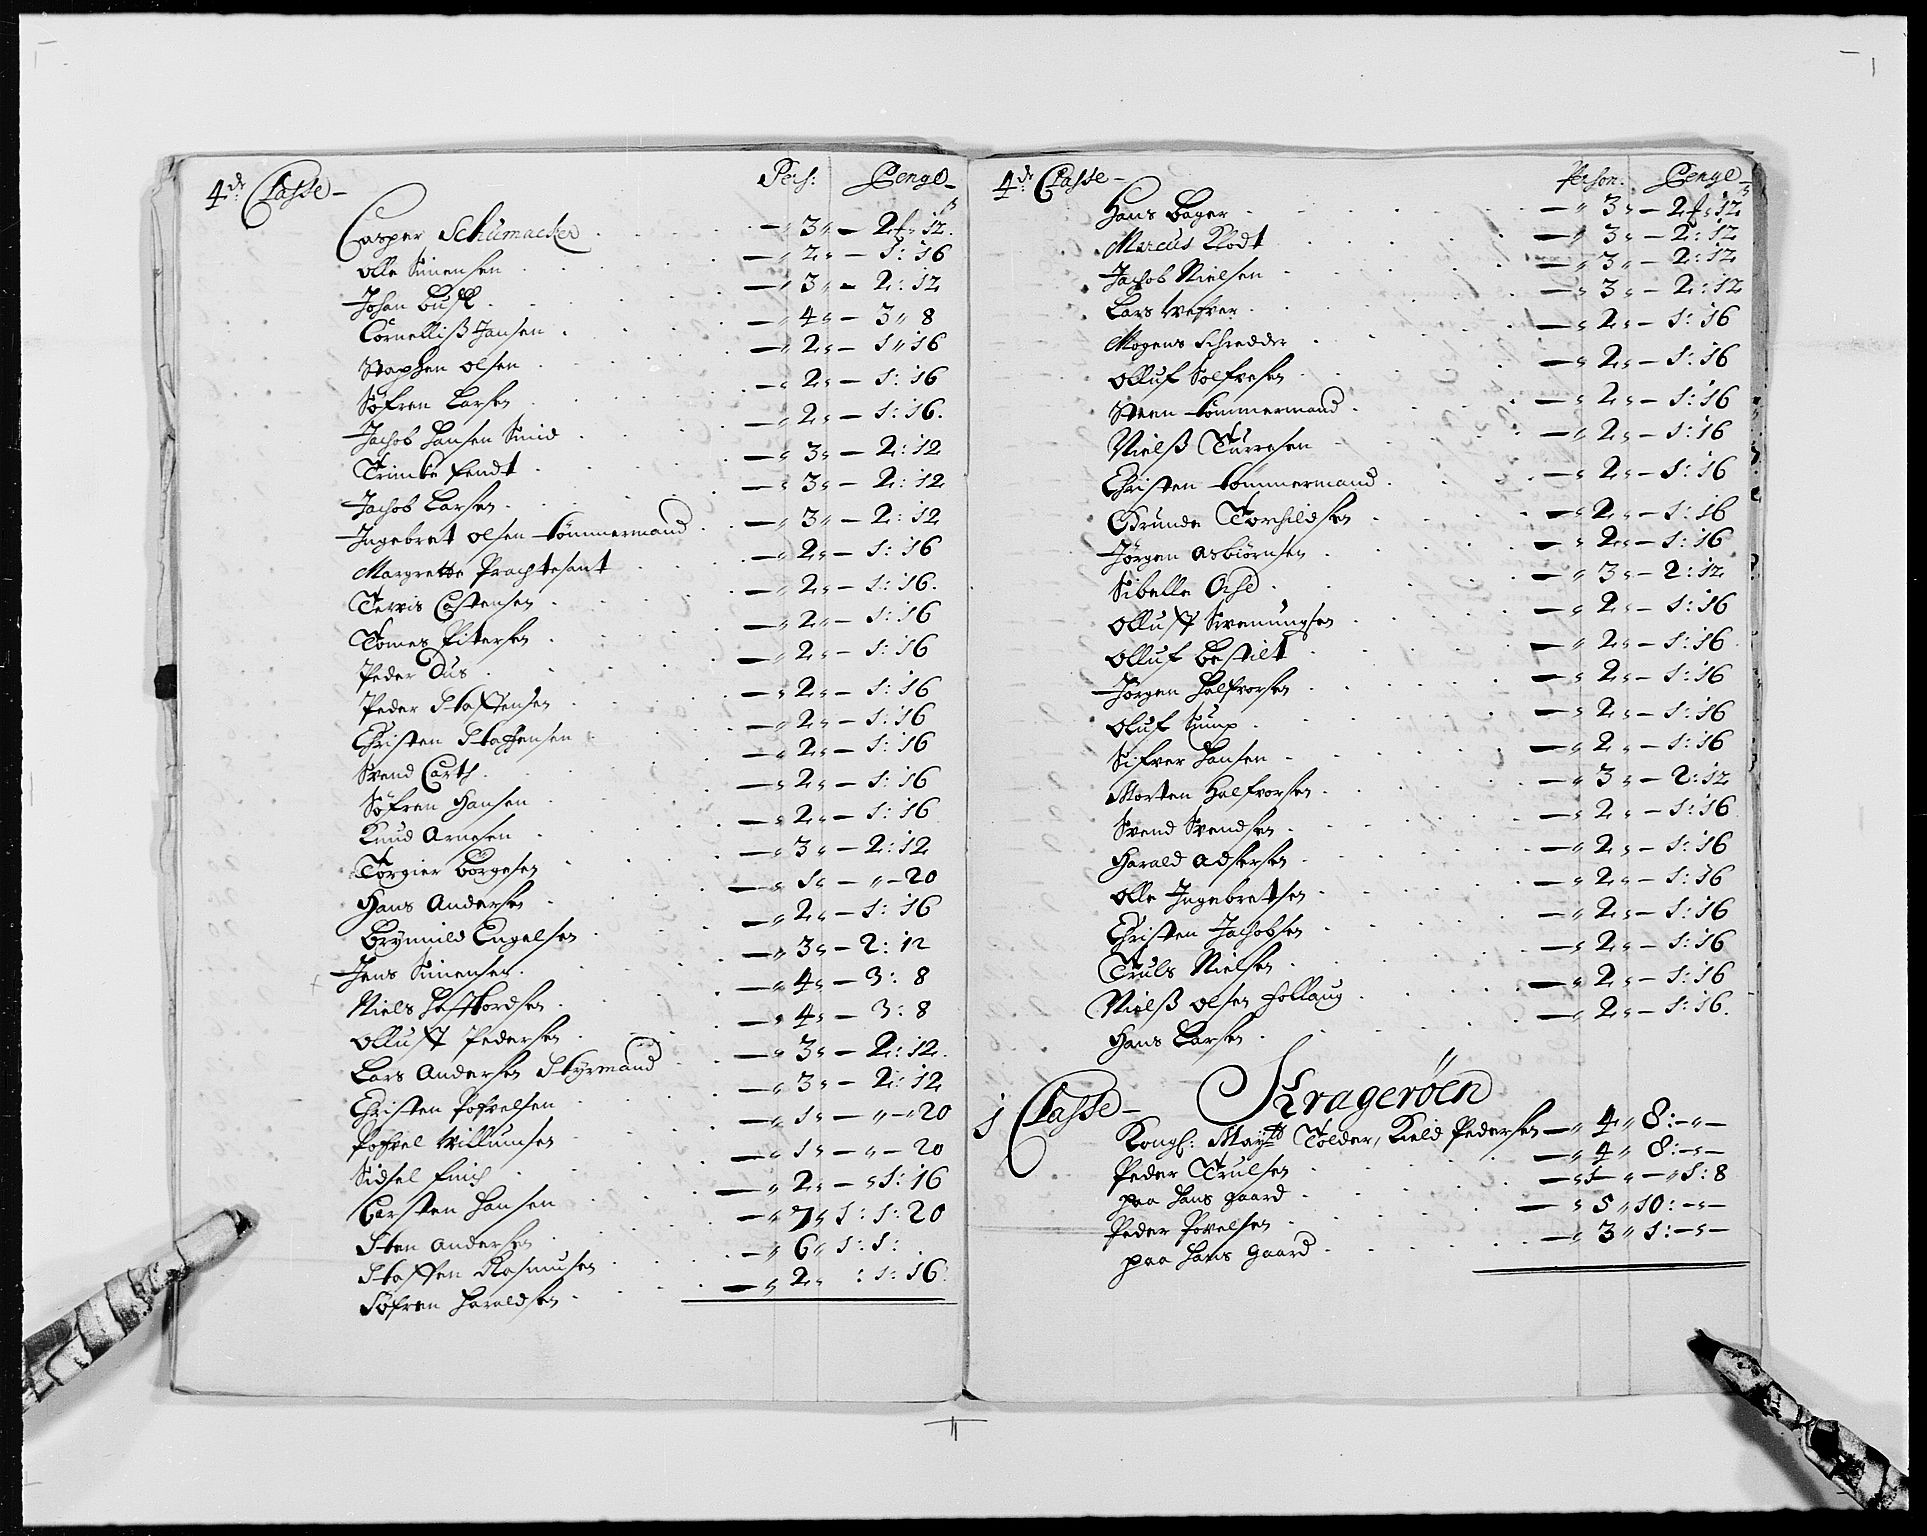 4de Classe – Pers: Penge
Casper Schumacker – 3 – 2 – 12
Olle Simensen – 2 – 1: 16
Johan Busk – 3 – 2: 12
Cornelliß Jansen – 4 – 3 8
Staphen Olsen – 2 – 1 16
Søfren Larsen – 2 – 1: 16
Jachob Hansen Smid – 2 – 1: 16
Trinke Fendt – 3 – 2: 12
Jachob Larsen – 3 – 2: 12
Ingebret Olsen tømmermand – 3 – 2: 12
Margrette Prachtesant – 2 – 1: 16
Terris Castensen – 2 – 1: 16
Tomes Pitersen – 2 – 1: 16
Peder Dus – 2 – 1: 16
Peder Staffensen – 2 – 1: 16
Christen Staffensen – 2 – 1: 16
Svend Carth – 2 – 1: 16
Søfren Hansen – 2 – 1: 16
Knud Arnesen – 2 – 1: 16
Torgier Børgesen – 3 – 2: 12
Hans Andersen – 1 – 20
Brynnild Engelsen – 2 – 1: 16
Jens Simensen – 3 – 2: 12
Niels – 4 – 3: 8
Olluff Pedersen – 4 – 3: 8
Lars Andersen Styrmand – 3 – 2: 12
Christen Pofvelsen – 3 – 2: 12
Pofvel Willumsen – 1 – 20
Sidsel Finch – 1 – 20
Carsten Hansen – 2 – 1: 16
Sten Andersen – 7 1: 1: 20
Staffen Rasmusen – 6 1: 1:
Søfren Haraldsen – 2 : 1: 16
4de Classe – Person: Penge
Hans Bager – 3 – 2 – 12
Marcus Klodt – 3 – 2: 12
Jachob Nielsen – 3 – 2: 12
Lars Vefver – 3 – 2: 12
Mogens Schredder – 2 – 1: 16
Olluf Solfvesen – 2 – 1: 16
Steen tømmermand – 2 – 1: 16
Nielß Turresen – 2 – 1: 16
Christen tømmermand – 2 – 1: 16
Grunde Torchildsen – 2 – 1: 16
Jørgen Asbiørnsen – 2 – 1: 16
Sibelle – 3 – 2: 12
Olluff Svenungsen – 2 – 1: 16
Olluf Bestilt – 2 – 1: 16
Jørgen Halfvorsen – 2 – 1: 16
Oluf Sump – 2 – 1: 16
Sifver Hansen – 2 – 1: 16
Morten Halfvorsen – 3 – 2: 12
Svend Svendsen – 2 – 1: 16
Harald Adsersen – 2 – 1: 16
Olle Ingebretsen – 2 – 1: 16
Christen Jachobsen – 2 – 1: 16
Truls Nielsen – 2 – 1: 16
Nielß Olsen Follaug – 2 – 1: 16
Hans Larsen – 2 – 1: 16
Kragerøen
j Classe –
Kongl: Maytz Tolder, Kield Pedersen – 4 8: –
Peder Trulsen – 4 8: –
paa Hans gaard – 1 – 1: 8
Peder Povelsen – 5 10: –
paa Hans gaard – 3 1: –